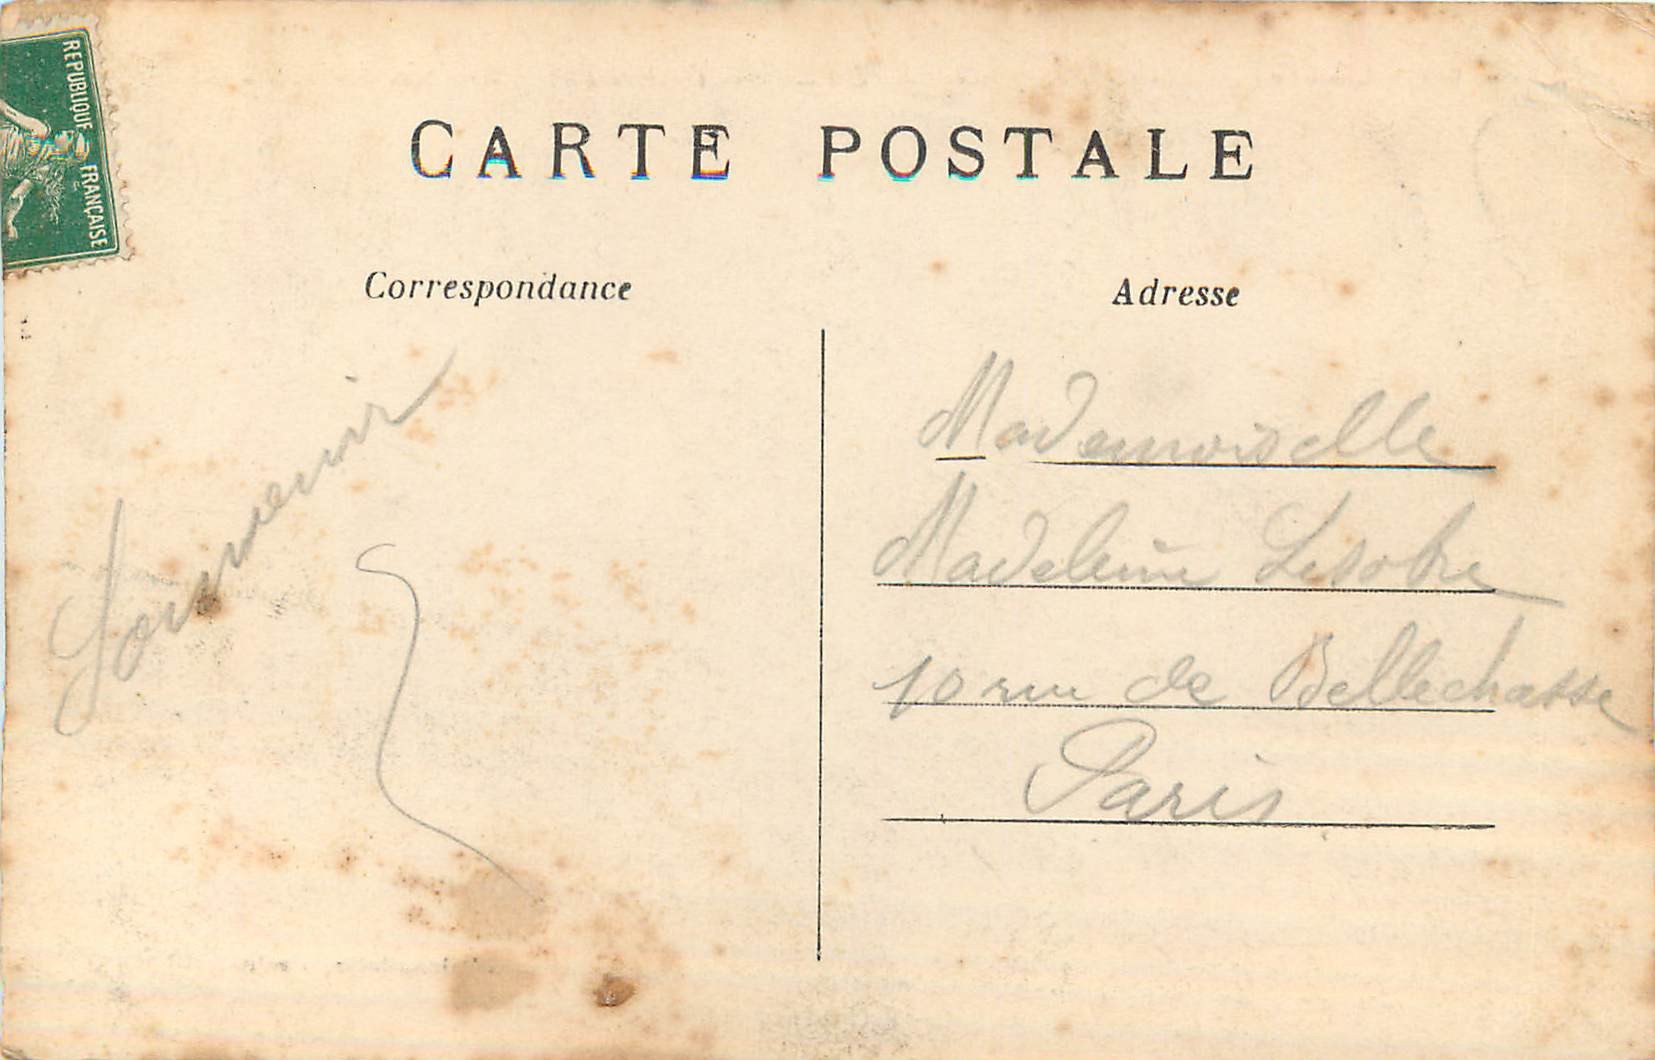 REPUBLIQUE FRANÇAISE
CARTE POSTALE
Correspondance
Adresse
Souvenir
Mademoiselle
Madeleine Lesobre
10 rue de Bellechasse
Paris